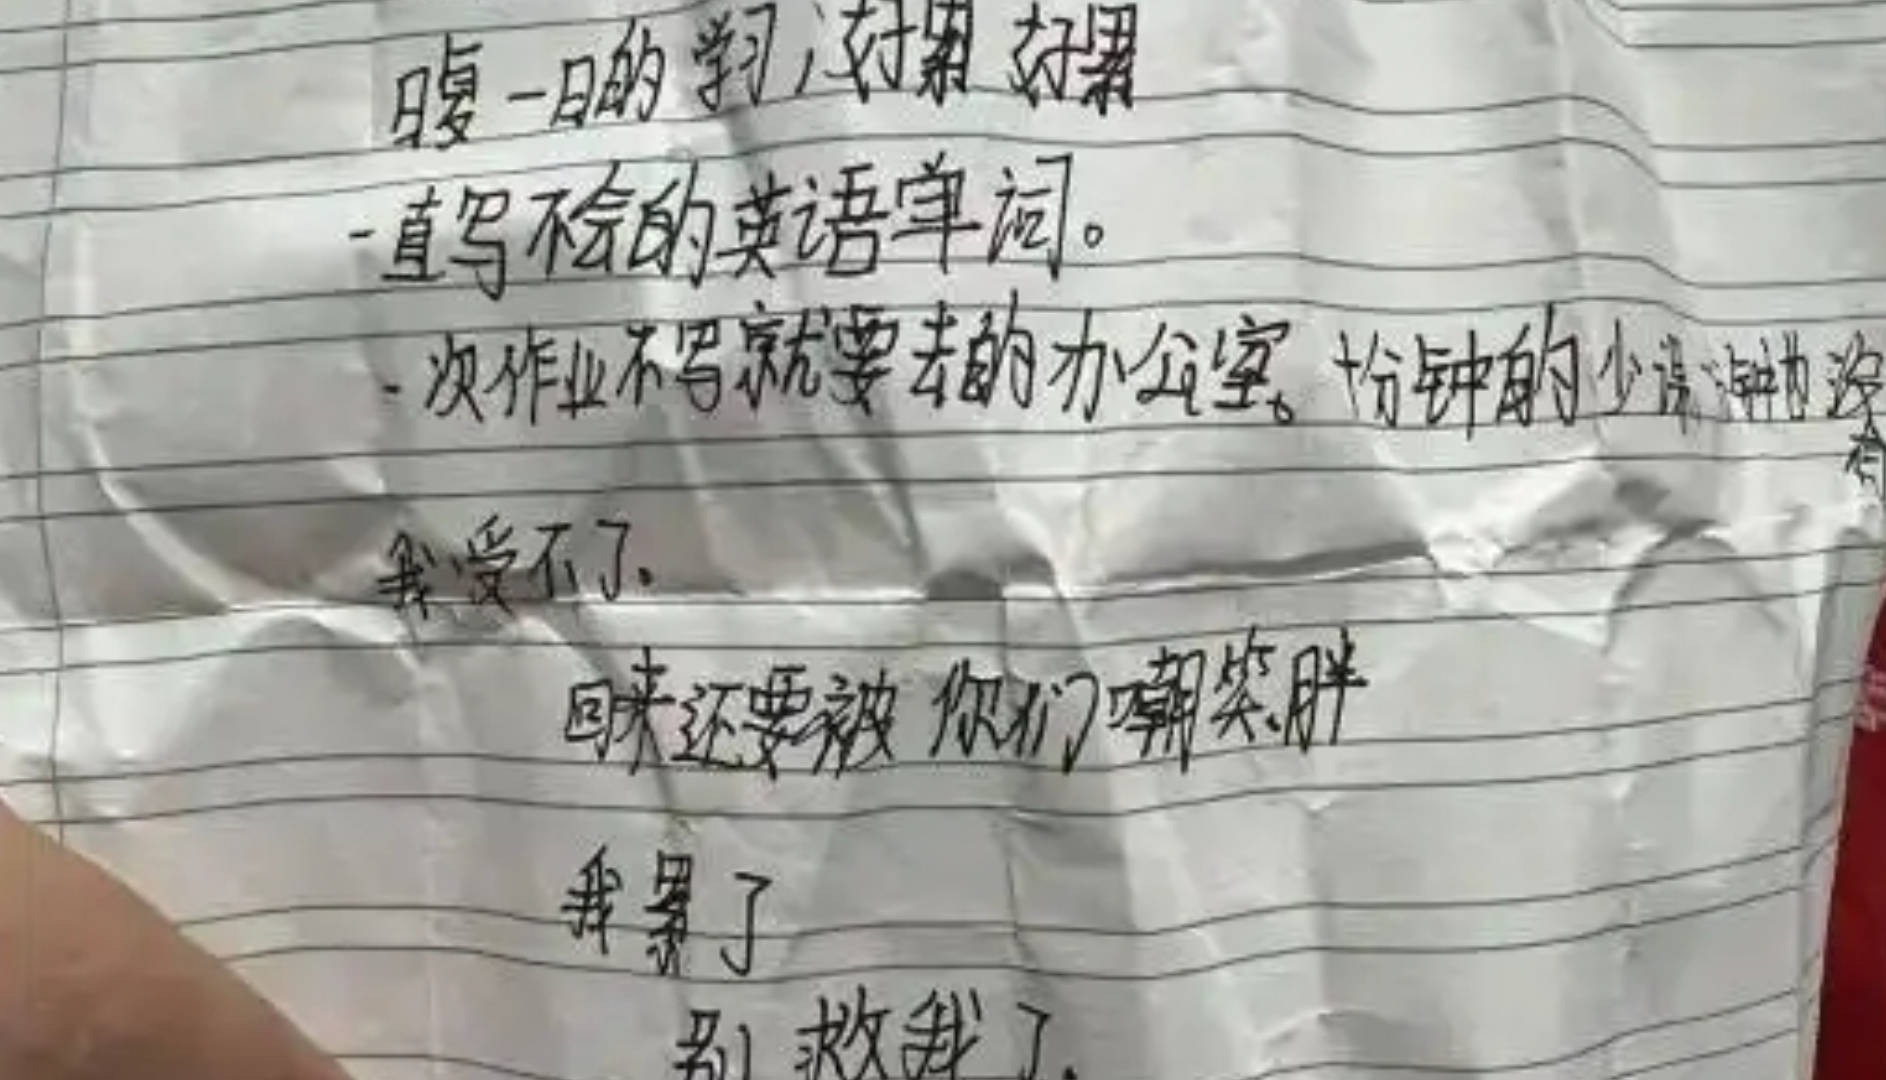 日复一日的学习，好累 好累
一直写不会的英语单词。
一次作业不写就要去的办公室。十分钟的
我受不了.
回来还要被 你们嘲笑.胖
我累了
别救我了.